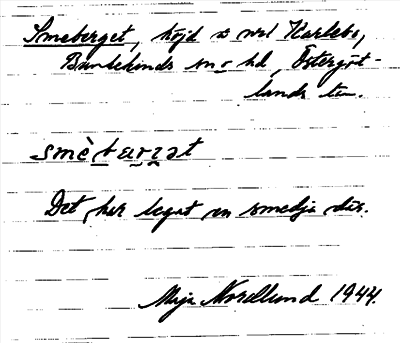 Smeberget, höjd s vid Harsbo,
Bankekinds sn o hd, Östergöt-
lands län.
smè̱bæ̱rjət
Det har legat en smedja där.
Maja Nordlund 1944.